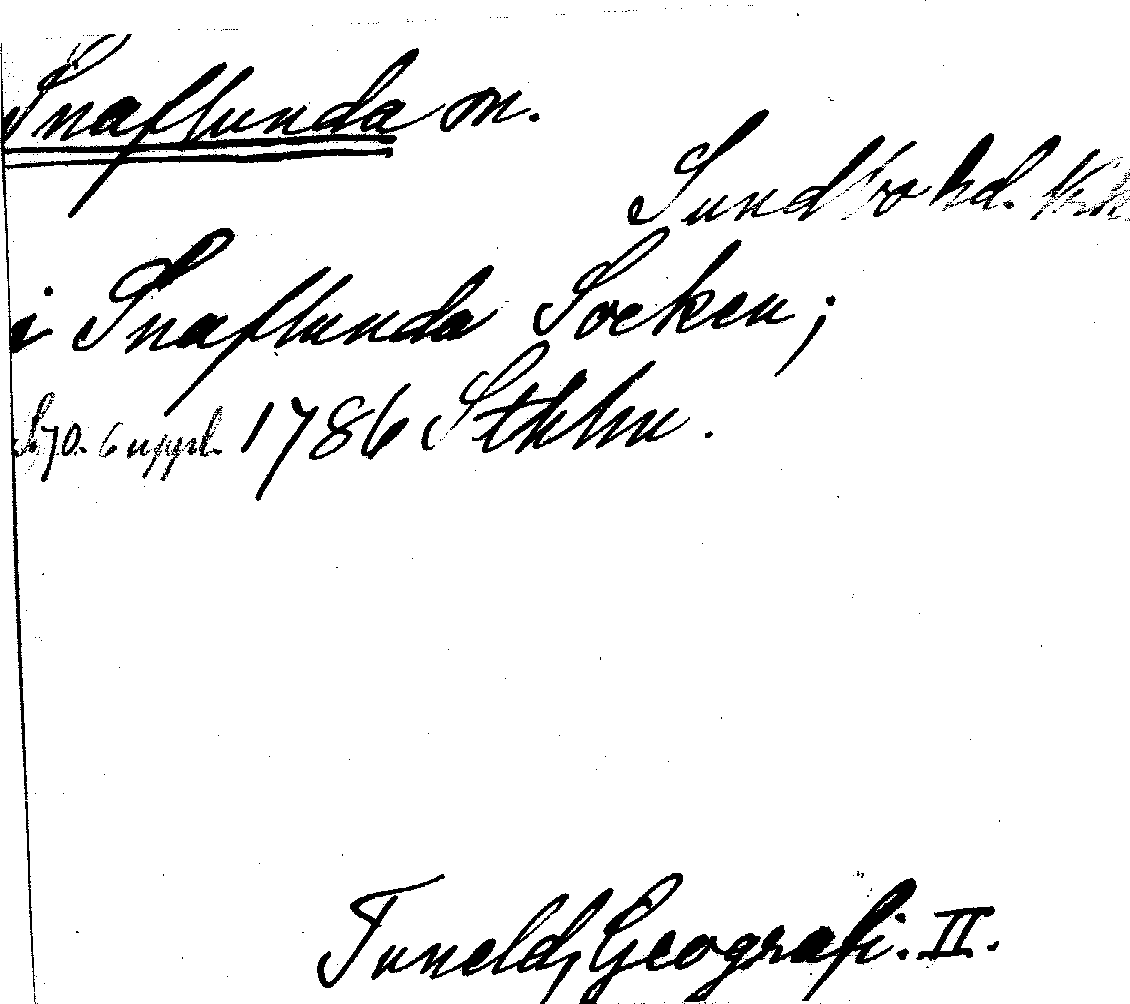 Snaflunda m.
Sundbo hd.
i Snaflunda Socken;
S. 70. 6 uppl. 1786 Sthlm.
Tuneld, Geografi. II.